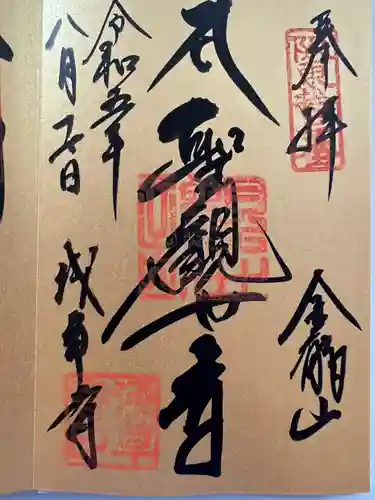 奉拝
金龍山
聖観世音
令和五年
八月二日
浅草寺